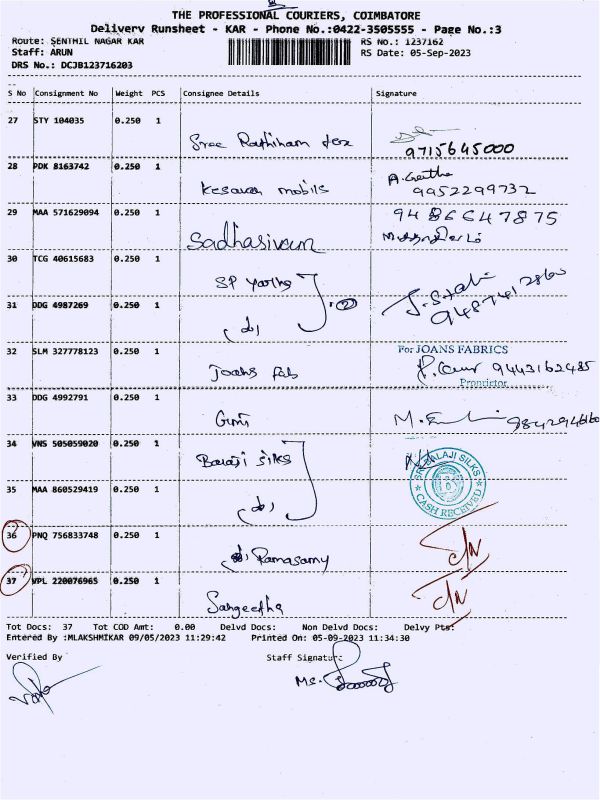 THE PROFESSIONAL COURIERS, COIMBATORE
Delivery Runsheet - KAR - Phone No.:0422-3505555 - Page No.:3
Route: SENTHIL NAGAR KAR
RS No.: 1237162
Staff: ARUN
RS Date: 05-Sep-2023
DRS No.: DCJB123716203
S No Consignment No Weight PCS Consignee Details Signature
27 STY 104035 0.250 1
9715645000
28 PDK 8163742 0.250 1
Kesavan mobils
A.Geetha
9952299732
29 MAA 571629094 0.250 1
Sadhasivam
9486647875
30 TCG 40615683 0.250 1
SP yarns
31 DDG 4987269 0.250 1
9487412860
32 SLM 327778123 0.250 1
Joans fab
For JOANS FABRICS
9443162485
Proprietor
33 DDG 4992791 0.250 1
34 VNS 505059020 0.250 1
Balaji silks
SRI BALAJI SILKS
CASH RECEIVED
35 MAA 860529419 0.250 1
36 PNQ 756833748 0.250 1
Ramasamy
37 VPL 220076965 0.250 1
Sangeetha
Tot Docs: 37 Tot COD Amt: 0.00 Delvd Docs: Non Delvd Docs: Delvy Pts:
Entered By :MLAKSHMIKAR 09/05/2023 11:29:42 Printed On: 05-09-2023 11:34:30
Verified By
Staff Signature